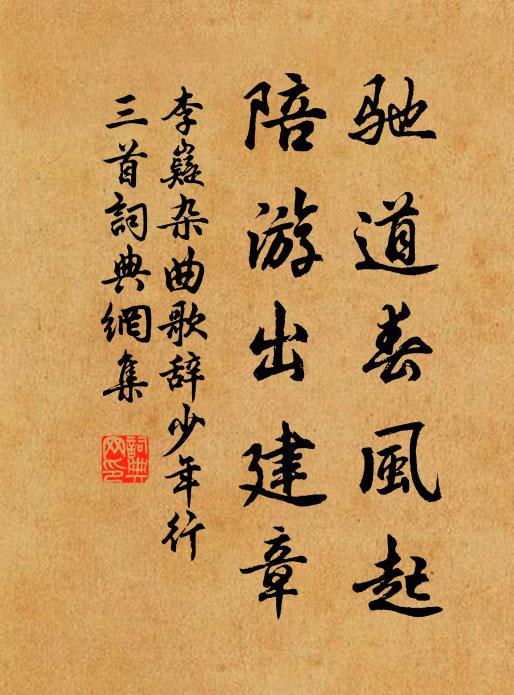 驰道春風起
陪游出建章
李嶷杂曲歌辞少年行
三首詞典網集
詞典网印